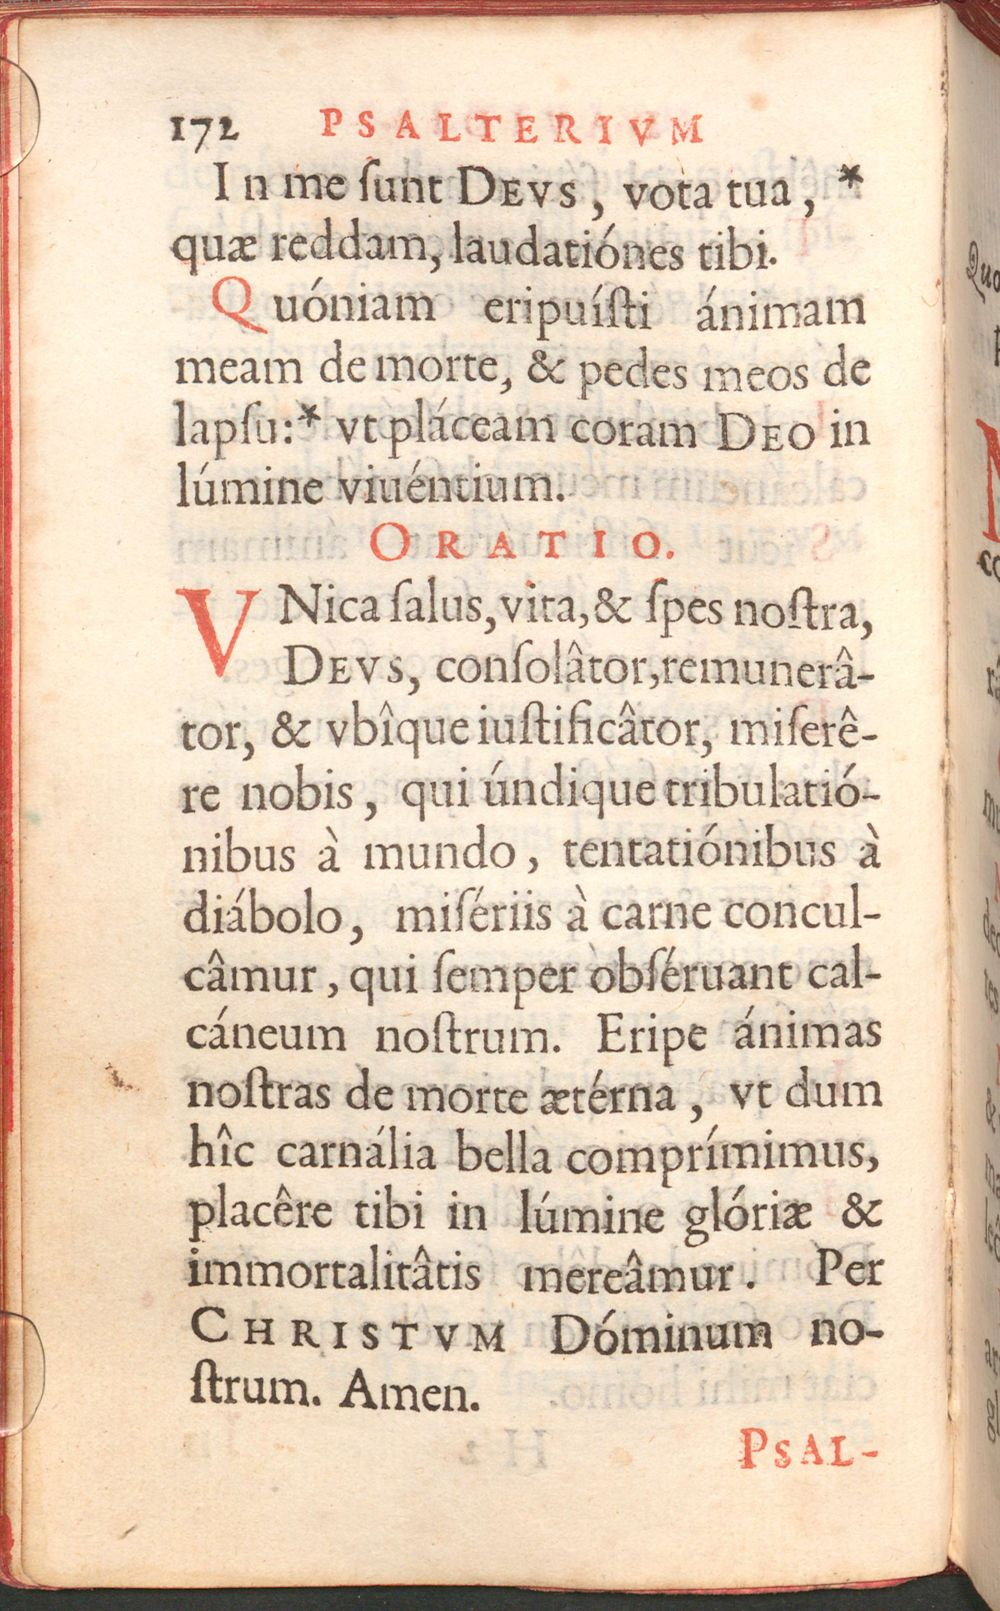 172 PSALTERIVM
In me ſunt DEVS, vota tua, *
quæ reddam, laudatiónes tibi.
Quóniam eripuíſti ánimam
meam de morte, & pedes meos de
lapſu:* vt pláceam coram DEO in
lúmine viuéntium.
ORATIO.
VNica ſalus, vita, & ſpes noſtra,
DEVS, conſolâtor, remunerâ-
tor, & vbîque iuſtificâtor, miſerê-
re nobis, qui úndique tribulatió-
nibus à mundo, tentatiónibus à
diábolo, miſériis à carne concul-
câmur, qui ſemper obſéruant cal-
cáneum noſtrum. Eripe ánimas
noſtras de morte ætérna, vt dum
hîc carnália bella comprímimus,
placêre tibi in lúmine glóriæ &
immortalitâtis mereâmur. Per
CHRISTVM Dóminum no-
ſtrum. Amen.
PSAL-